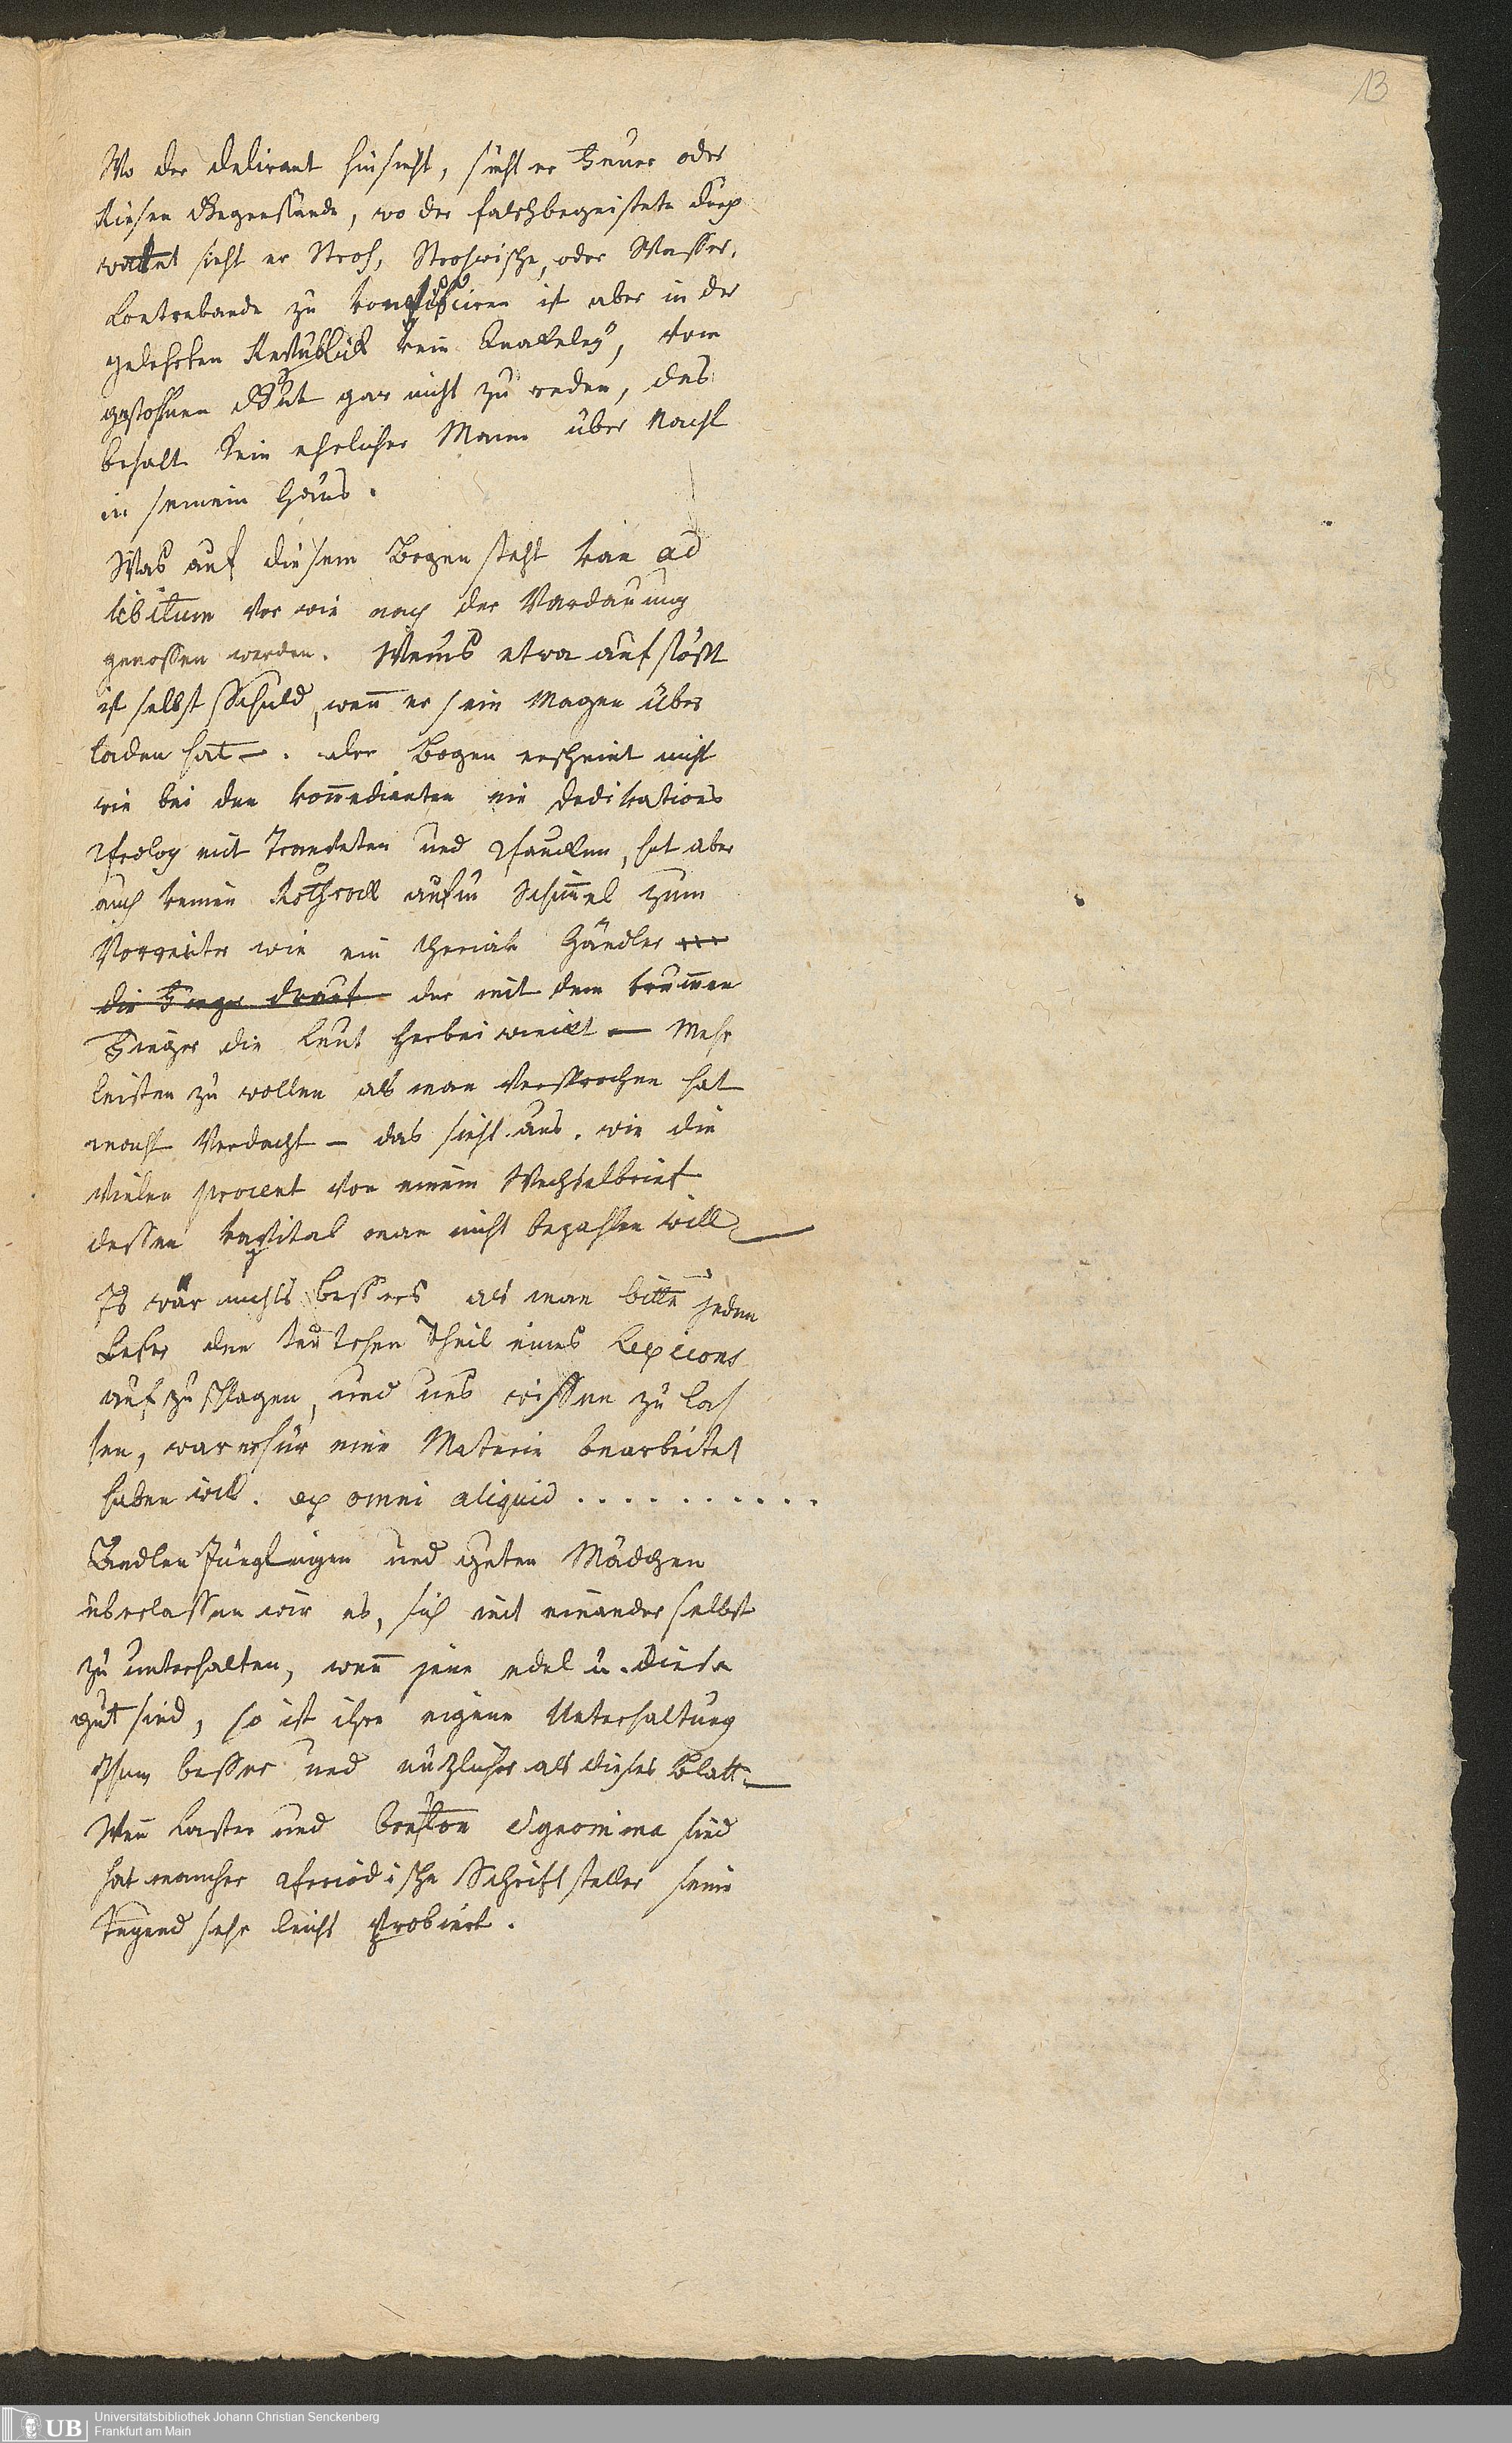 13
Wo der delirant hinsieht, sieht er Feuer oder
Riesen Gegenstände, wo der falschbegeistete
sieht er Stroh, Strohwische, oder Wasser.
Contrebande zu konfisciren ist aber in der
gelehrten Republick kein, vom
gestohlnen Gut gar nicht zu reden, das
behalt kein ehrlicher Mann über Nacht
in seinem Haus.
Was auf diesem Bogen steht kan ad
libitum vor wie nach der Verdauung
genossen werden. Wems etwa aufstößt
ist selbst Schuld, wen̅ er sein Magen über
laden hat —. der Bogen erscheint nicht
wie bei den kom̅edianten ein dedikations
Prolog mit Trompeten und Paucken, hat aber
auch keinen Rothrock aufm Schim̅el zum
Vorreiter wie ein theriak Händler
die Finger drauf der mit dem krum̅en
Finger die Leut herbei winckt — Mehr
leisten zu wollen als man versprochen hat
macht Verdacht — das sieht aus. wie die
vielen procent von einem Wechselbrief
dessen kapital man nicht bezahlen will —
Es wär nichts bessers als man bitte jeden
Leser den teutschen Theil eines Lexicons
aufzuschlagen, und uns wissen zu las
sen, was er für eine Materie bearbeitet
haben will. ex omni aliquid . . . . . . . . . .
Edlen Jünglingen und guten Mädchen
überlassen wir es, sich mit einander selbst
zu unterhalten, wen̅ jene edel u. diese
gut sind, so ist ihre eigene Unterhaltung
schon besser und nützlicher als dieses Blatt —
Wen̅ Laster und bonton Synonima sind
hat mancher Periodische Schriftsteller seine
Tugend sehr leicht Probiert.
UB
Universitätsbibliothek Johann Christian Senckenberg
Frankfurt am Main